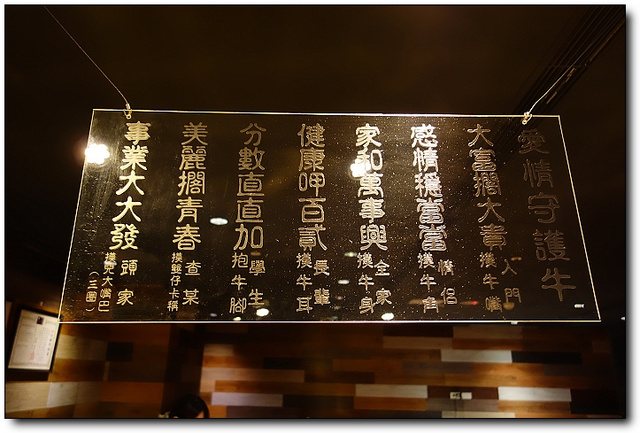 愛情守護牛
大富擱大貴
入門
摸牛嘴
感情穩當當
情侶
摸牛角
家和萬事興
全家
摸牛身
健康呷百貳
長輩
摸牛耳
分數直直加
學生
抱牛腳
美麗擱青春
查某
摸雙仔卡稱
事業大大發
頭家
摸大嘴巴
(三圈)